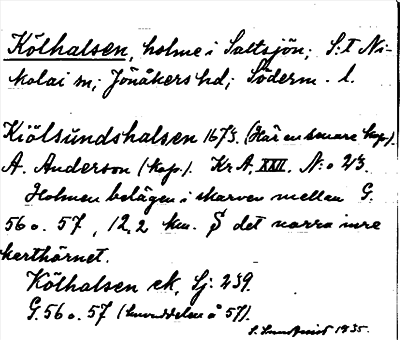 Kölhalsen, holme i Saltsjön; S:t Ni-
kolai sn; Jönåkers hd; Söderm. l.
Kiölsundshalsen 1673. (Här en senare kop.).
A. Anderson (kop.). Kr A, XXII. N:o 23.
Holmen belägen i skarven mellan G.
56 o. 57, 12,2 km. S det norra inre
kerthörnet.
Kölhalsen ek, Sj: 239.
G. 56 o. 57 (huvuddelen å 57).
1935.